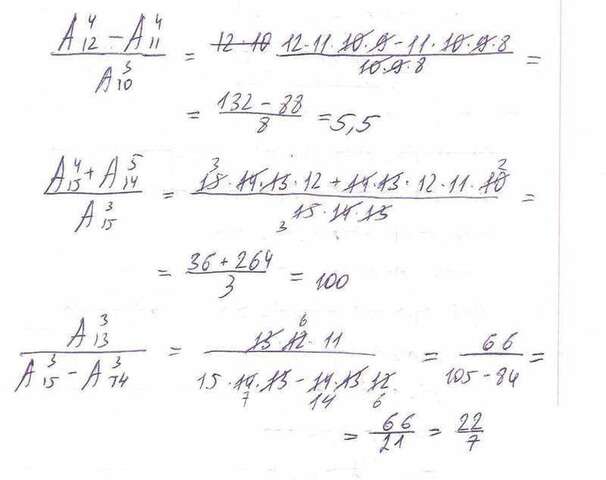 (A₁₂⁴ − A₁₁⁴)/A₁₀³ = 12·10 (12·11·10·9 − 11·10·9·8)/(10·9·8) =
= (132 − 88)/8 = 5,5
(A₁₅⁴ + A₁₄⁵)/A₁₅³ = (15·14·13·12 + 14·13·12·11·10)/(15·14·13) =
3 2 3
= (36 + 264)/3 = 100
A₁₃³/(A₁₅³ − A₁₄³) = (13·12·11)/(15·14·13 − 14·13·12) = 66/(105 − 84) =
6 7 14 6
= 66/21 = 22/7